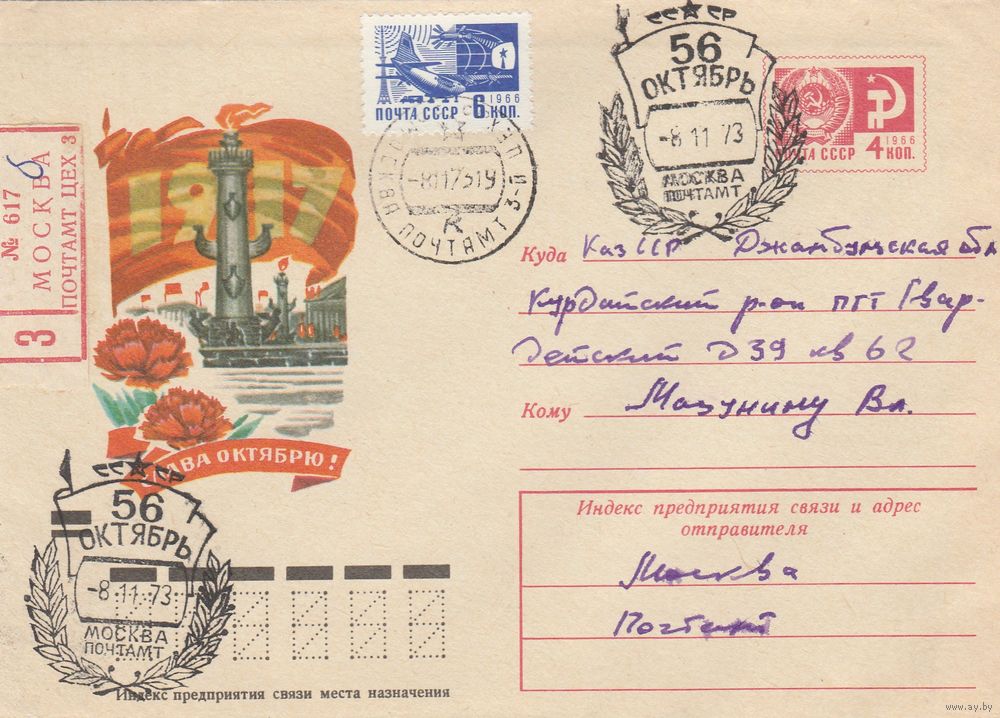 СССР
56
ОКТЯБРЬ
-8 11 73
МОСКВА
ПОЧТАМТ
1966
ПОЧТА СССР 6 КОП.
1966
ПОЧТА СССР 4 КОП.
МОСКВА
-8 11 73 19
ПОЧТАМТ
З
№ 617
МОСКВА
ПОЧТАМТ ЦЕХ 3
1917
СЛАВА ОКТЯБРЮ!
Куда Каз ССР Джамбульская обл
Курдайский р-он пгт Гвар-
дейский Д 39 кв 62
Кому Мазунину Вл.
Индекс предприятия связи и адрес
отправителя
Москва
Почтамт
СССР
56
ОКТЯБРЬ
-8 11 73
МОСКВА
ПОЧТАМТ
Индекс предприятия связи места назначения
www.ay.by